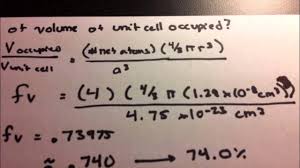 of volume of unit cell occupied?
V occupied / V unit cell = (# net atoms)(4/3 π r³) / a³
fv = (4)(4/3 π (1.28 × 10⁻⁸ cm)³) / 4.75 × 10⁻²³ cm³
fv = .73975
≈ .740 → 74.0%